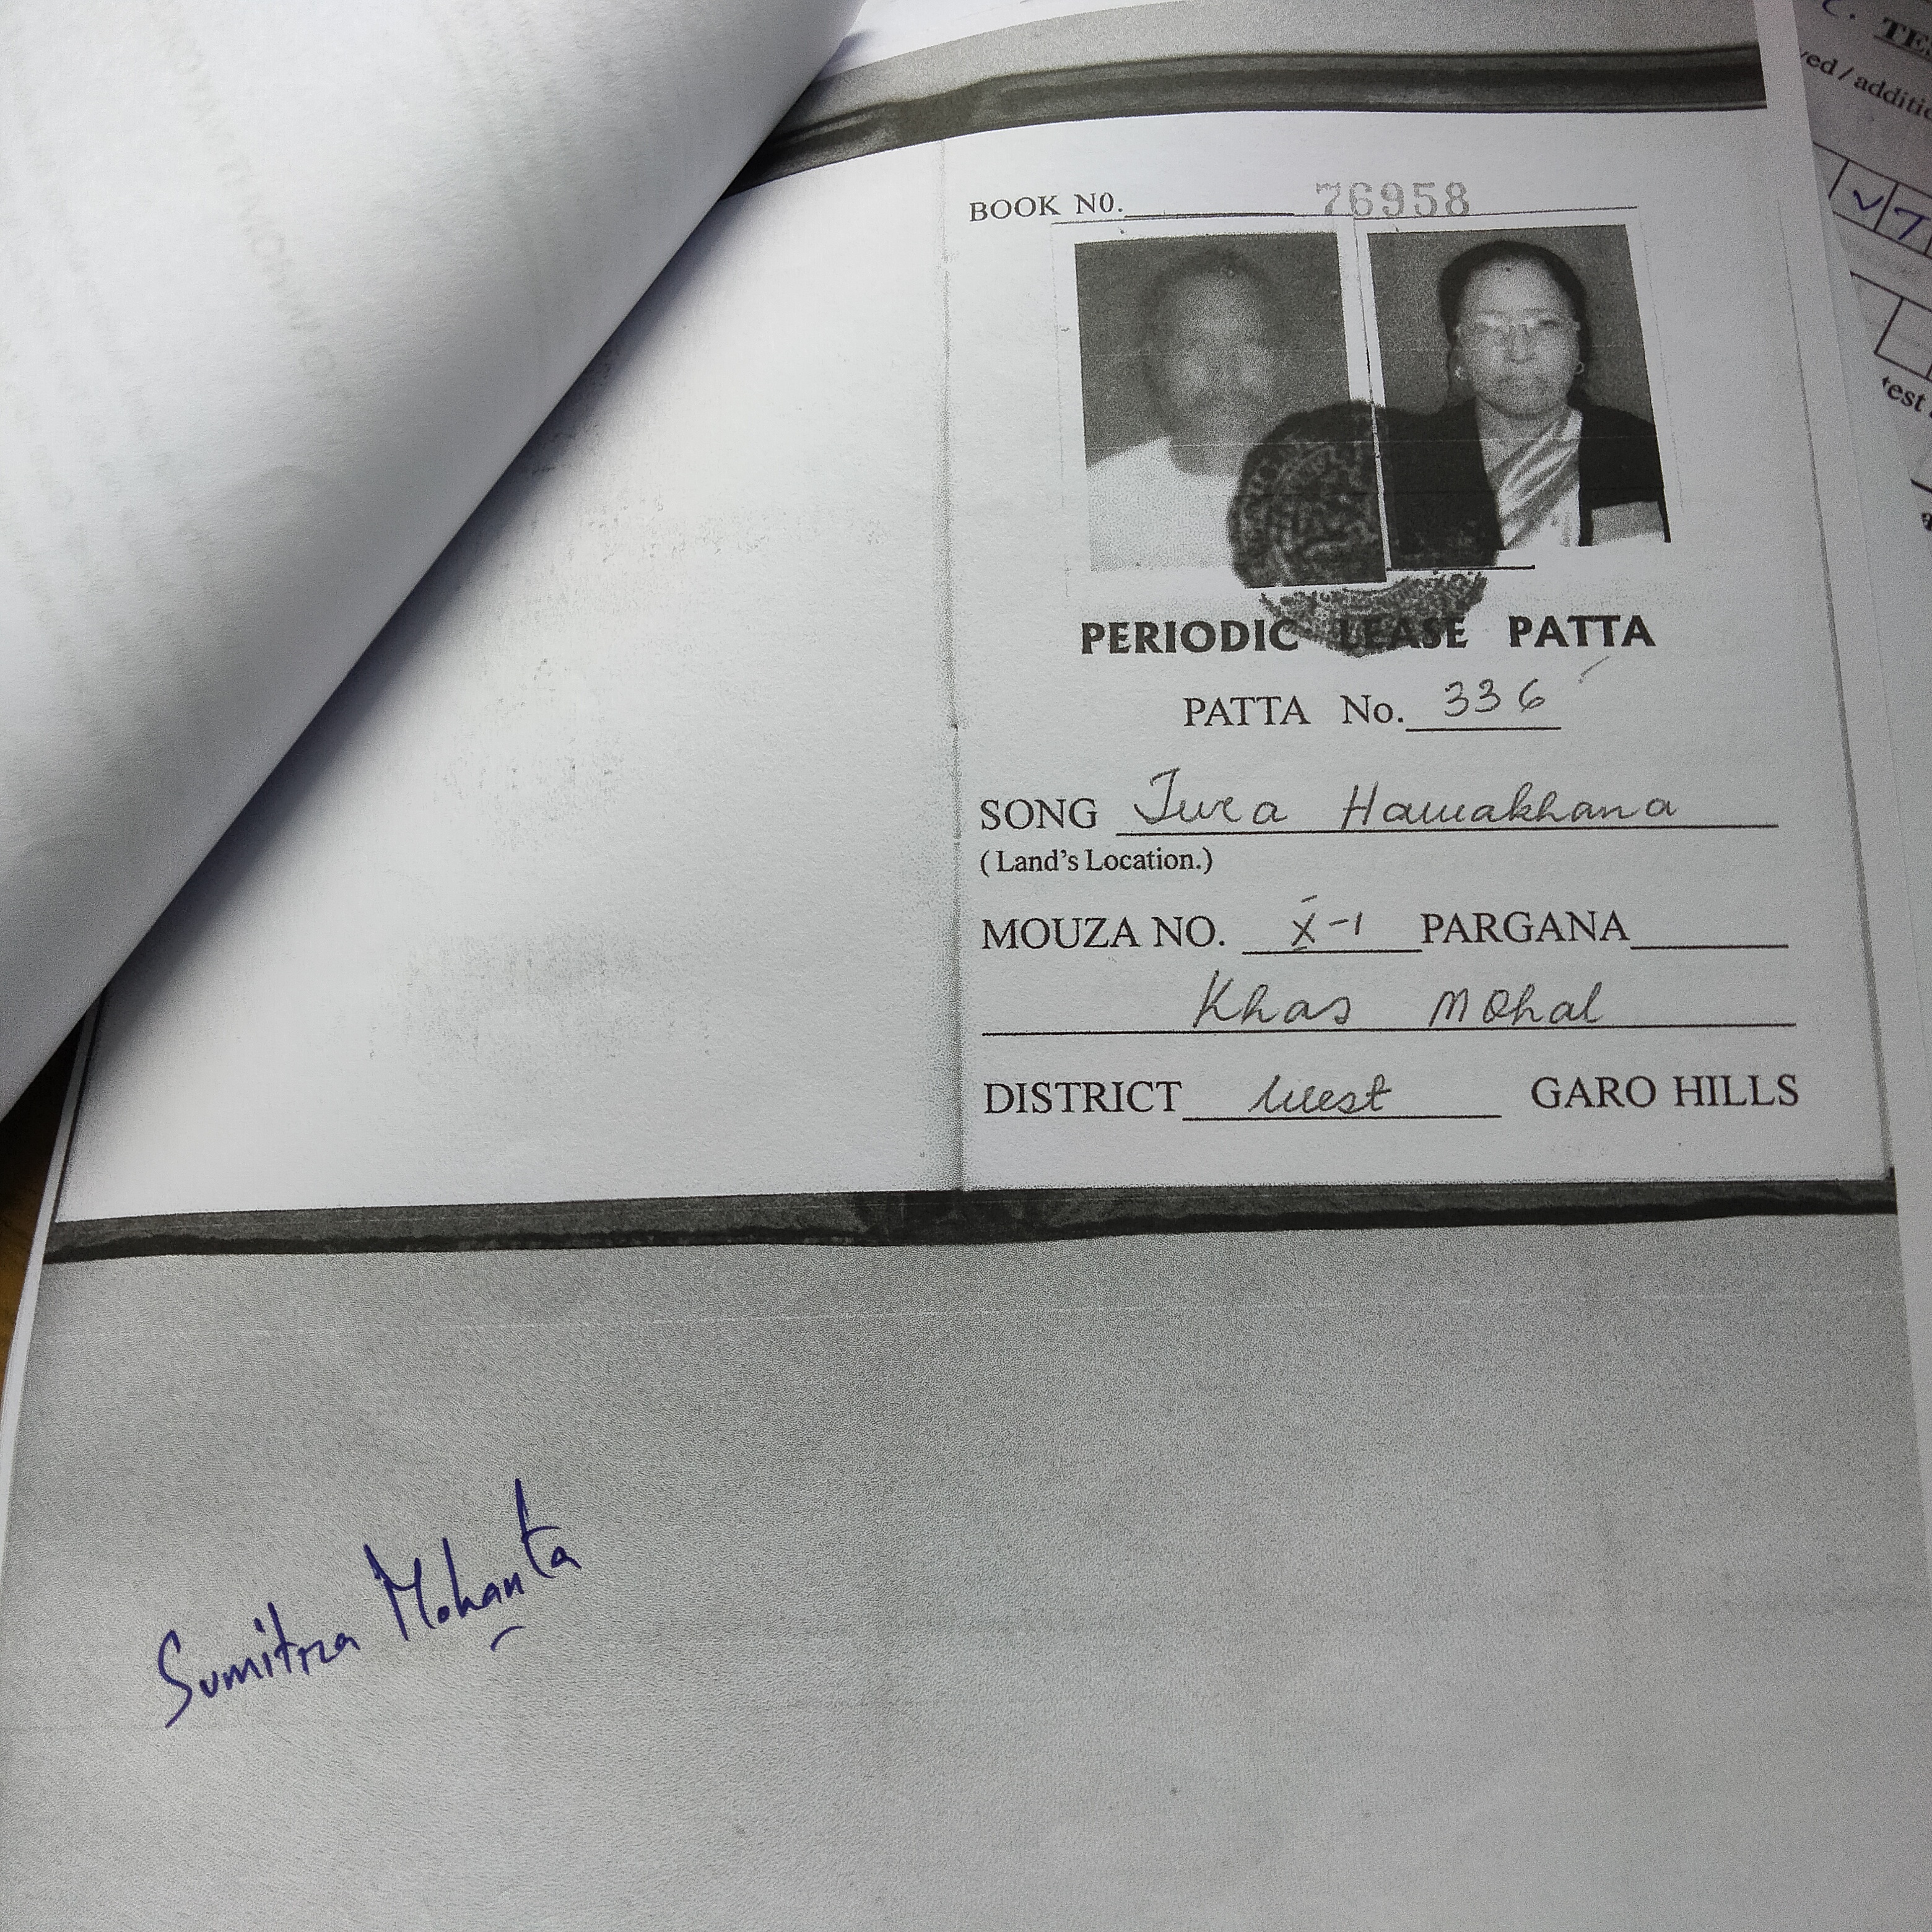 BOOK NO. 76958
PERIODIC LEASE PATTA
PATTA No. 336
SONG Tura Hawakhana
(Land's Location.)
MOUZA NO. X-1 PARGANA
Khas Mohal
DISTRICT West GARO HILLS
Sumitra Mohanta